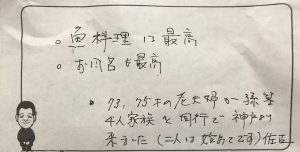 。魚料理は最高
。お月名も最高
・73、75才の老夫婦が孫等
4人家族と同行で神戸より
来ました(二人は始めてです)佐古